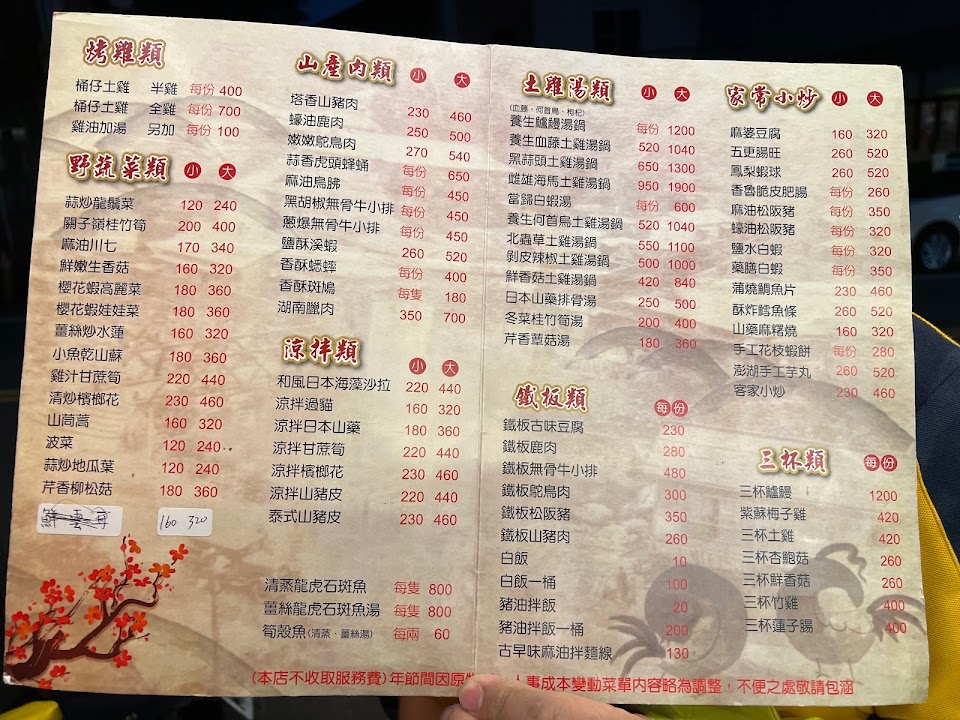 烤雞類
桶仔土雞 半雞 每份 400
桶仔土雞 全雞 每份 700
雞油加湯 另加 每份 100
野蔬菜類 小 大
蒜炒龍鬚菜 120 240
關子嶺桂竹筍 200 400
麻油川七 170 340
鮮嫩生香菇 160 320
櫻花蝦高麗菜 180 360
櫻花蝦娃娃菜 180 360
薑絲炒水蓮 160 320
小魚乾山蘇 180 360
雞汁甘蔗筍 220 440
清炒檳榔花 230 460
山茼蒿 160 320
波菜 120 240
蒜炒地瓜葉 120 240
芹香柳松菇 180 360
160 320
山產肉類 小 大
塔香山豬肉 230 460
蠔油鹿肉 250 500
嫩嫩鴕鳥肉 270 540
蒜香虎頭蜂蛹 每份 650
麻油鳥胇 每份 450
黑胡椒無骨牛小排 每份 450
蔥爆無骨牛小排 每份 450
鹽酥溪蝦 260 520
香酥蟋蟀 每份 400
香酥斑鳩 每隻 180
湖南臘肉 350 700
涼拌類 小 大
和風日本海藻沙拉 220 440
涼拌過貓 160 320
涼拌日本山藥 180 360
涼拌甘蔗筍 220 440
涼拌檳榔花 230 460
涼拌山豬皮 220 440
泰式山豬皮 230 460
清蒸龍虎石斑魚 每隻 800
薑絲龍虎石斑魚湯 每隻 800
筍殼魚(清蒸、薑絲湯) 每兩 60
土雞湯類 小 大
(血藤、何首烏、枸杞)
養生鱸鰻湯鍋 每份 1200
養生血藤土雞湯鍋 520 1040
黑蒜頭土雞湯鍋 650 1300
雌雄海馬土雞湯鍋 950 1900
當歸白蝦湯 每份 600
養生何首烏土雞湯鍋 520 1040
北蟲草土雞湯鍋 550 1100
剝皮辣椒土雞湯鍋 500 1000
鮮香菇土雞湯鍋 420 840
日本山藥排骨湯 250 500
冬菜桂竹筍湯 200 400
芹香蕈菇湯 180 360
鐵板類 每份
鐵板古味豆腐 230
鐵板鹿肉 280
鐵板無骨牛小排 480
鐵板鴕鳥肉 300
鐵板松阪豬 350
鐵板山豬肉 260
白飯 10
白飯一桶 100
豬油拌飯 20
豬油拌飯一桶 200
古早味麻油拌麵線 130
家常小炒 小 大
麻婆豆腐 160 320
五更腸旺 260 520
鳳梨蝦球 260 520
香魯脆皮肥腸 每份 260
麻油松阪豬 每份 350
蠔油松阪豬 每份 320
鹽水白蝦 每份 320
藥膳白蝦 每份 350
蒲燒鯛魚片 230 460
酥炸鱈魚條 260 520
山藥麻糬燒 160 320
手工花枝蝦餅 每份 280
澎湖手工芋丸 260 520
客家小炒 230 460
三杯類 每份
三杯鱸鰻 1200
紫蘇梅子雞 420
三杯土雞 420
三杯杏鮑菇 260
三杯鮮香菇 260
三杯竹雞 400
三杯蓮子腸 400
(本店不收取服務費)年節間因原 人事成本變動菜單內容略為調整，不便之處敬請包涵